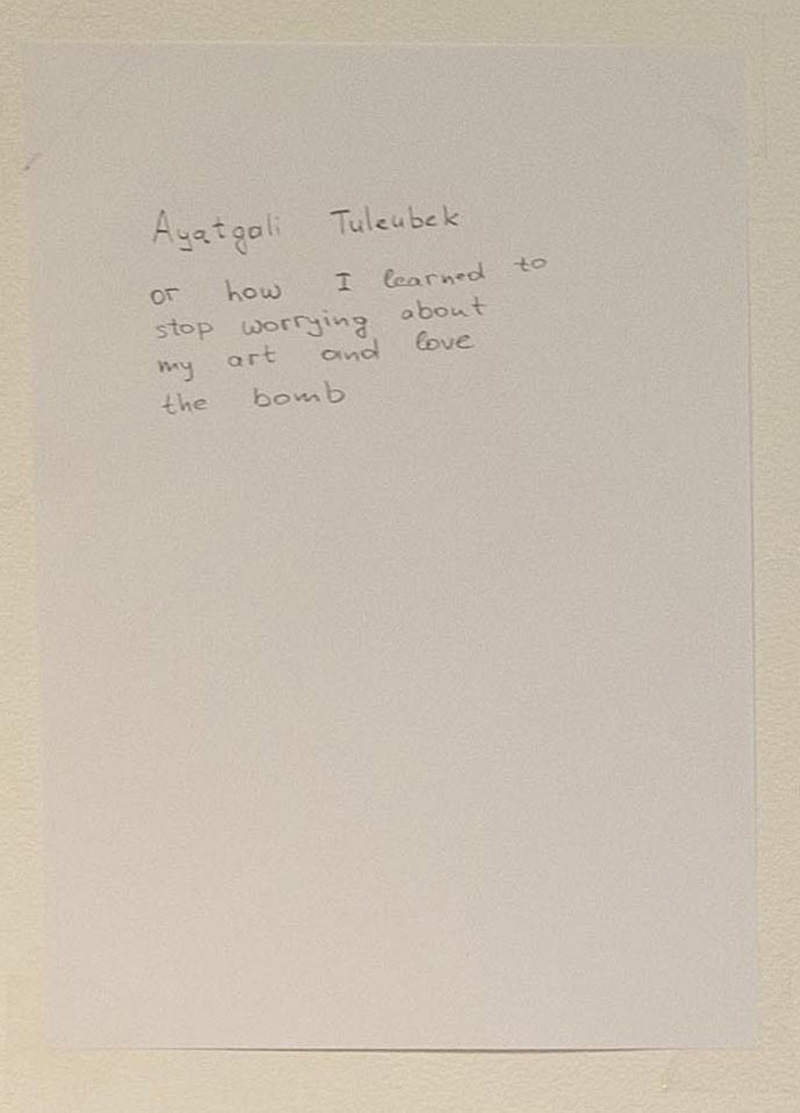 Ayatgali Tuleubek
or how I learned to
stop worrying about
my art and love
the bomb